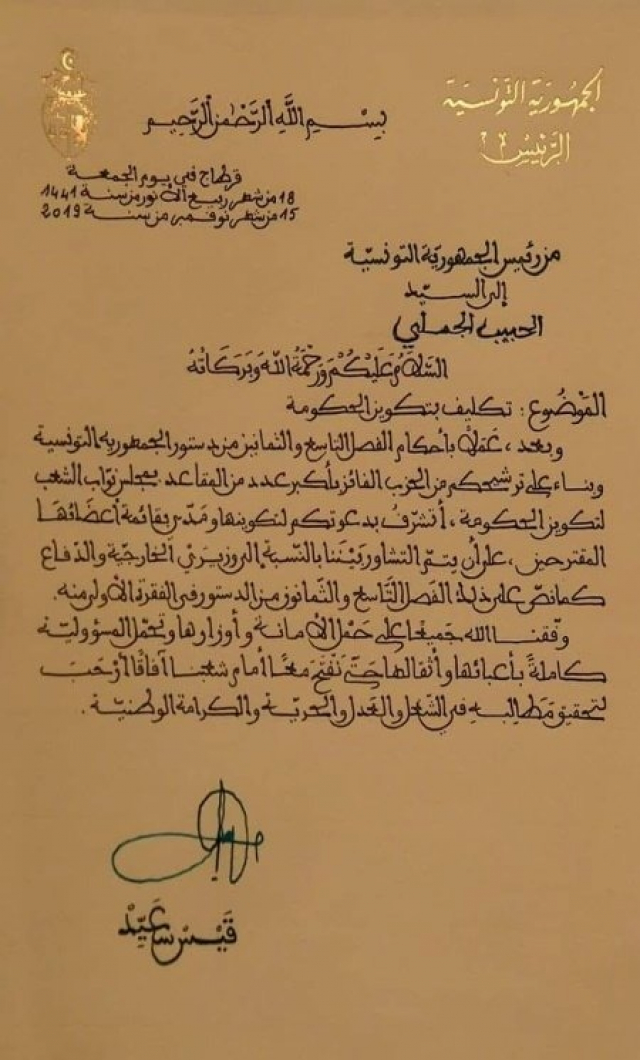 الجمهورية التونسية
الرئيس
بِسْمِ اللَّهِ الرَّحْمٰنِ الرَّحِيمِ
قرطاج في يوم الجمعة
18 من شهر ربيع الأنور من سنة 1441
15 من شهر نوفمبر من سنة 2019
من رئيس الجمهورية التونسية
إلى السيّد
الحبيب الجملي
السَّلَامُ عَلَيْكُمْ وَرَحْمَةُ اللَّهِ وَبَرَكَاتُهُ
المَوْضُوع : تكليف بتكوين الحكومة
وبعد، عَمَلًا بأحكام الفصل التاسع والثمانين من دستور الجمهورية التونسية
وبناء على ترشيحكم من الحزب الفائز بأكبر عدد من المقاعد بمجلس نوّاب الشعب
لتكوين الحكومة، أتشرّف بدعوتكم لتكوينها ومَدّي بقائمة أعضائها
المقترحين، على أن يتمّ التشاور بَيْنَنا بالنّسبة إلى وزيرَيْ الخارجيّة والدّفاع
كما نصّ على ذلك الفصل التّاسع والثّمانون من الدستور في الفقرة الأولى منه.
وفّقنا الله جميعًا على حَمْل الأمانة وأوزارها وتحمّل المسؤوليّة
كاملةً بأعبائها وأثقالها حتّى نَفْتح معًا أمام شعبنا آفاقًا أرْحَبَ
لتحقيق مَطَالِبِهِ في الشّغل والعَدل والحريّة والكرامة الوطنيّة.
قَيْس سَعَيِّدْ